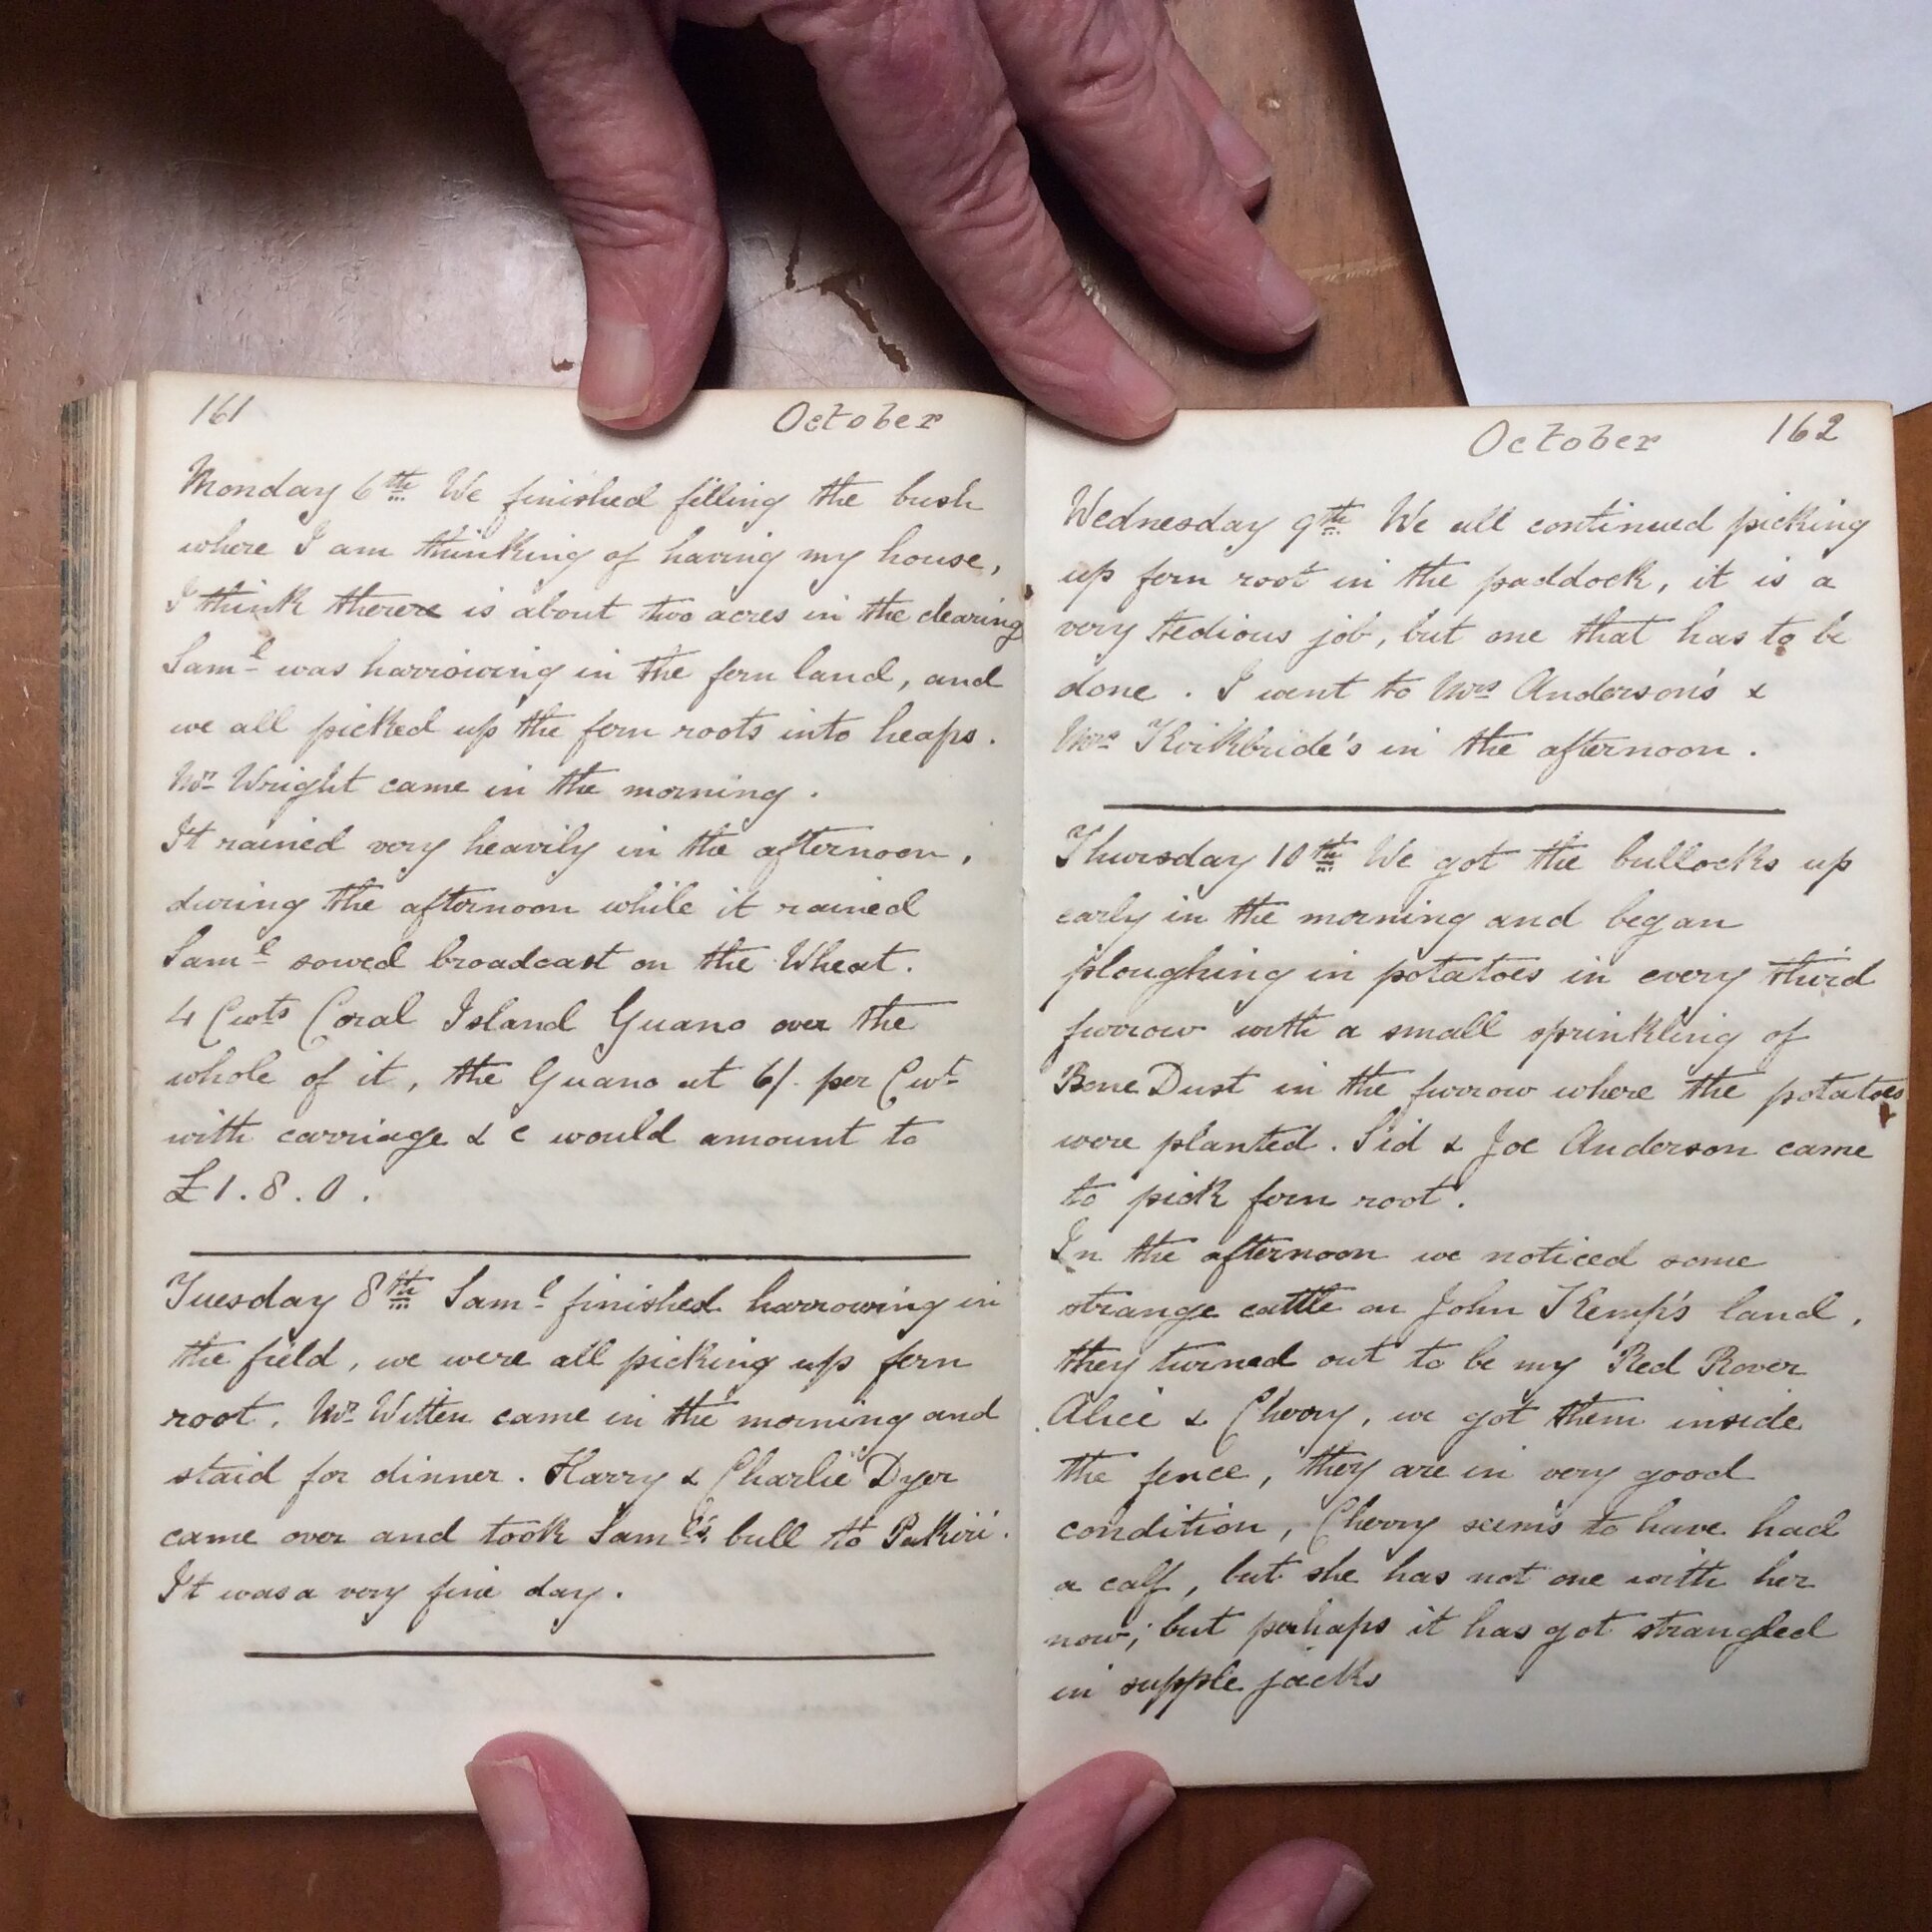 161 October
Monday 6th We finished filling the bush
where I am thinking of having my house,
I think therere is about two acres in the clearing
Saml was harrowing in the fern land, and
we all picked up the fern roots into heaps.
Mr Wright came in the morning.
It rained very heavily in the afternoon,
during the afternoon while it rained
Saml sowed broadcast on the Wheat.
4 Cwts Coral Island Guano over the
whole of it, the Guano at 6/- per Cwt
with carriage & c would amount to
£1.8.0.
Tuesday 8th Saml finished harrowing in
the field, we were all picking up fern
root. Mr Witten came in the morning and
staid for dinner. Harry & Charlie Dyer
came over and took Saml's bull to Pakiri.
It was a very fine day.
October 162
Wednesday 9th We all continued picking
up fern root in the paddock, it is a
very tedious job, but one that has to be
done. I went to Mrs Anderson's &
Mrs Kirkbride's in the afternoon.
Thursday 10th We got the bullocks up
early in the morning and began
ploughing in potatoes in every third
furrow with a small sprinkling of
Bone Dust in the furrow where the potatoes
were planted. Sid & Joe Anderson came
to pick fern root.
In the afternoon we noticed some
strange cattle on John Kemp's land,
they turned out to be my Red Rover
Alice & Cherry, we got them inside
the fence, they are in very good
condition, Cherry seems to have had
a calf, but she has not one with her
now; but perhaps it has got strangled
in supple jacks